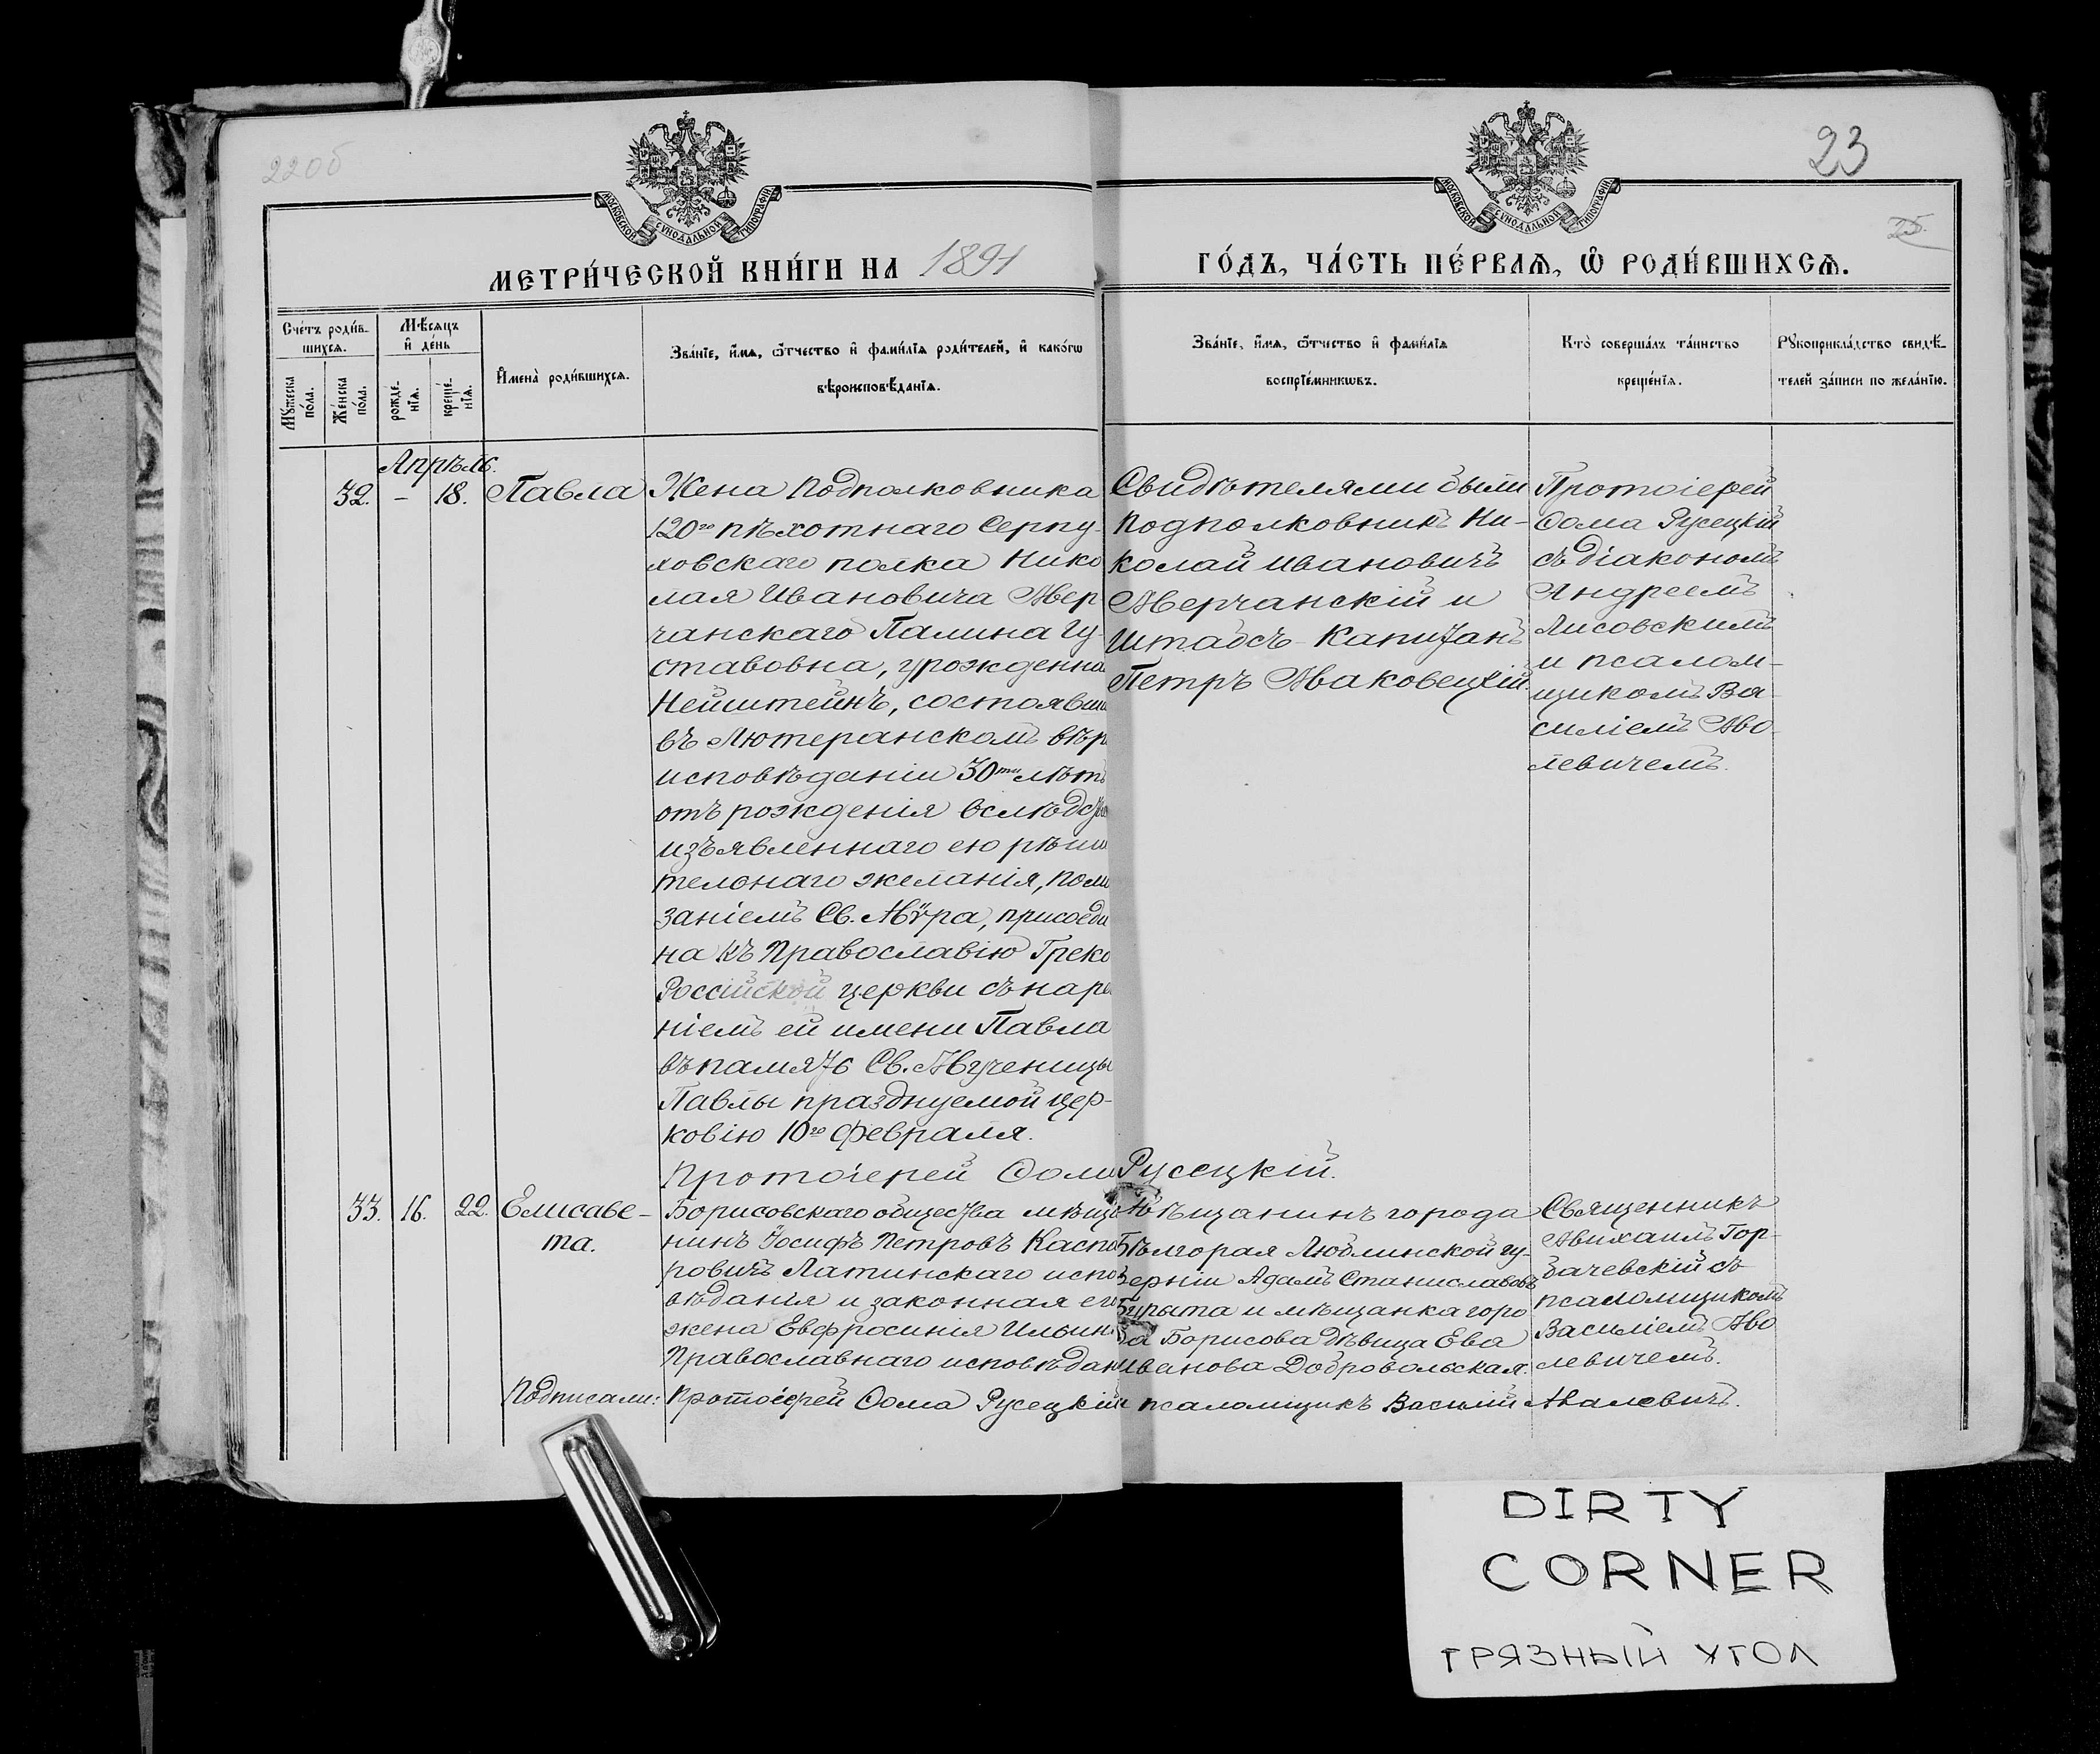 220б
23
25
МОСКОВСКОЙ СУНОДАЛЬНОЙ ТИПОГРАФІИ
МОСКОВСКОЙ СУНОДАЛЬНОЙ ТИПОГРАФІИ
МЕТРИ́ЧЕСКОЙ КНИ́ГИ НА 1891
ГО́ДЪ, ЧА́СТЬ ПЕ́РВАѦ, Ѡ РОДИ́ВШИХСѦ.
Сче́тъ роди́в-
шихсѧ.
Мꙋ́жеска по́ла.
Же́нска по́ла.
Мѣ́сѧцъ
и҆ де́нь
рожде́-
нїѧ.
креще́-
нїѧ.
И҆мена̀ роди́вшихсѧ.
Зва́нїе, и҆́мѧ, ѻ҆́тчество и҆ фами́лїѧ роди́телей, и҆ како́гѡ
вѣроисповѣ́данїѧ.
Зва́нїе, и҆́мѧ, ѻ҆́тчество и҆ фами́лїѧ
воспрїе́мникѡвъ.
Кто̀ соверша́лъ та́инство
креще́нїѧ.
Рꙋкоприкла́дство свидѣ́-
телей за́писи по жела́нїю.
Апрѣль.
32. – 18. Павла
Жена Подполковника
120го пѣхотнаго Серпу-
ховскаго полка Нико
лая Ивановича Мер
чанскаго Палина Гу-
ставовна, урожденна
Нейштейнъ, состоявш
въ Лютеранскомъ вѣр
исповѣданіи 30ти лѣтъ
отъ рожденія вслѣдств
изъявленнаго ею рѣши
тельнаго желанія, пома
заніемъ Св. Мѵра, присоеди
на къ Православію Греко
Россійской церкви съ наре
ніемъ ей имени Павла
въ память Св. Мученицы
Павлы празднуемой цер-
ковію 10го Февраля.
Свидѣтелями были
Подполковникъ Ни-
колай Ивановичъ
Мерчанскій и
Штабсъ-Капитанъ
Петръ Маковецкій.
Протоіерей
Ѳома Русецкій
съ діакономъ
Андреемъ
Лисовскимъ
и псалом-
щикомъ Ва-
силіемъ Мо-
левичемъ.
Протоіерей Ѳома Русецкій.
33. 16. 22. Елисаве-
та.
Борисовскаго общества мѣща
нинъ Іосифъ Петровъ Каспе
ровичъ Латинскаго испо
вѣданія и законная его
жена Евфросинія Ильин
Православнаго исповѣдан
Мѣщанинъ города
Бѣлгорая Люблинской гу-
берніи Адамъ Станиславовъ
Бурыта и мѣщанка горо
да Борисова дѣвица Ева
Иванова Добровольская.
Священникъ
Михаилъ Гор-
бачевскій съ
псаломщикомъ
Василіемъ Мо
левичемъ.
Подписали: Протоіерей Ѳома Русецкій и псаломщикъ Василій Малевичъ.
DIRTY
CORNER
ГРЯЗНЫЙ УГОЛ